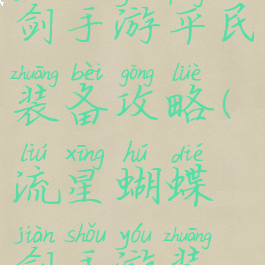 剑手游平民
zhuāng bèi gōng lüè
装备攻略(
liú xīng hú dié
流星蝴蝶
jiàn shǒu yóu zhuāng
剑手游装